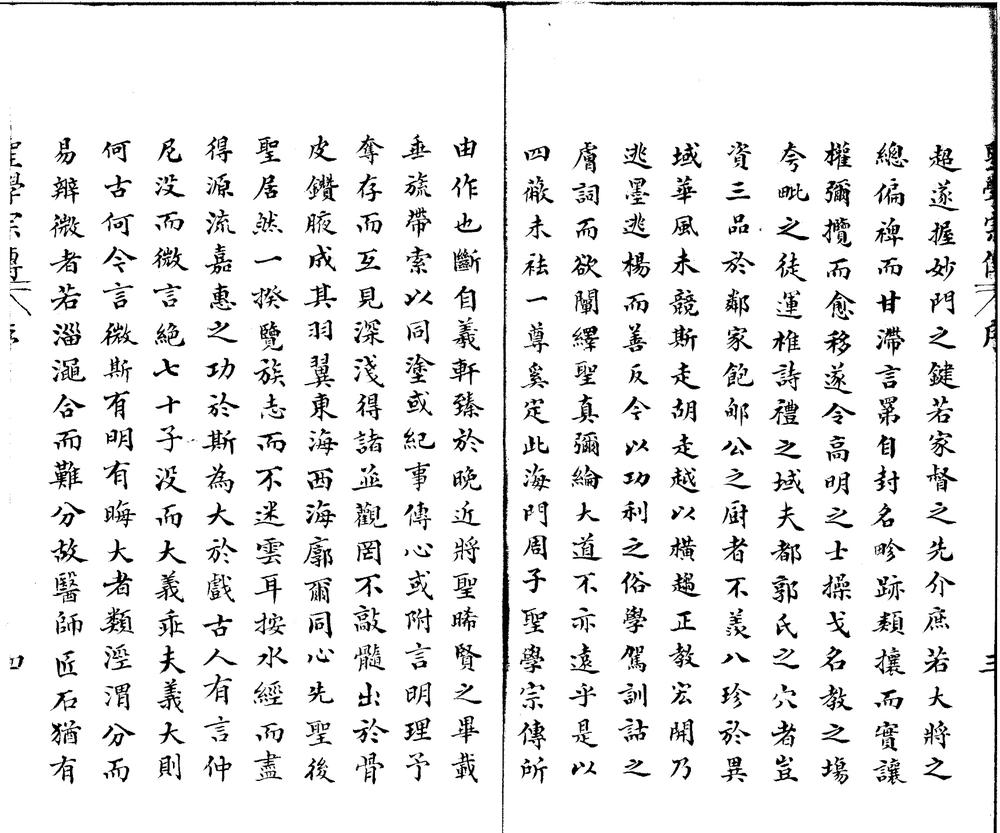 超遂握妙門之鍵若家督之先介庶若大將之
總偏裨而甘滯言罤自封名畛跡類攘而實讓
權彌攬而愈移遂令高明之士操戈名教之塲
夸毗之徒運椎詩禮之域夫都郭氏之穴者豈
資三品於鄰家飽郇公之厨者不羨八珍於異
域華風未競斯走胡走越以橫趨正教宏開乃
逃墨逃楊而善反今以功利之俗學駕訓詁之
膚詞而欲闡繹聖真彌綸大道不亦遠乎是以
四薇未袪一尊奚定此海門周子聖學宗傳所
由作也斷自羲軒臻於晚近將聖晞賢之畢載
垂旒帶索以同塗或紀事傳心或附言明理予
奪存而互見深淺得諸並觀罔不敲髓出於骨
皮鑽腋成其羽翼東海西海廓爾同心先聖後
聖居然一揆覽族志而不迷雲耳按水經而盡
得源流嘉惠之功於斯為大於戲古人有言仲
尼没而微言絶七十子没而大義乖夫義大則
何古何今言微斯有明有晦大者類涇渭分而
易辨微者若淄澠合而難分故醫師匠石猶有